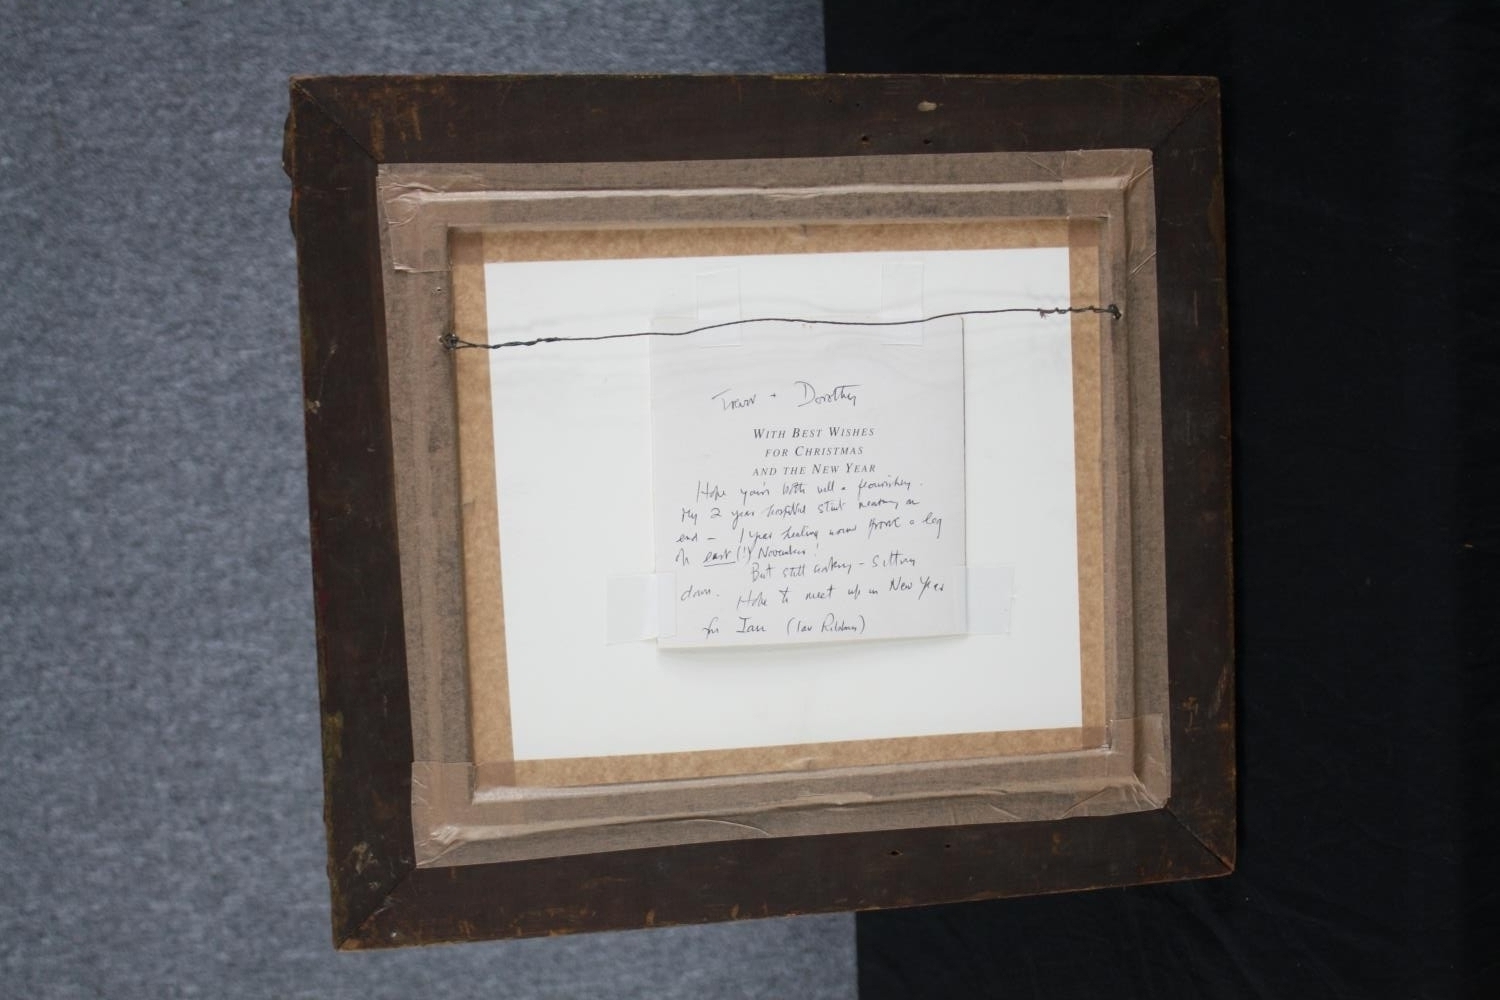 Trevor + Dorothy
WITH BEST WISHES
FOR CHRISTMAS
AND THE NEW YEAR
Hope you're both well + flourishing.
My 2 year hospital stint nearing an
end – 1 year healing wound broke a leg
in east (!) November!
But still working – sitting
down. Hope to meet up in New Year
fr Ian (Ian